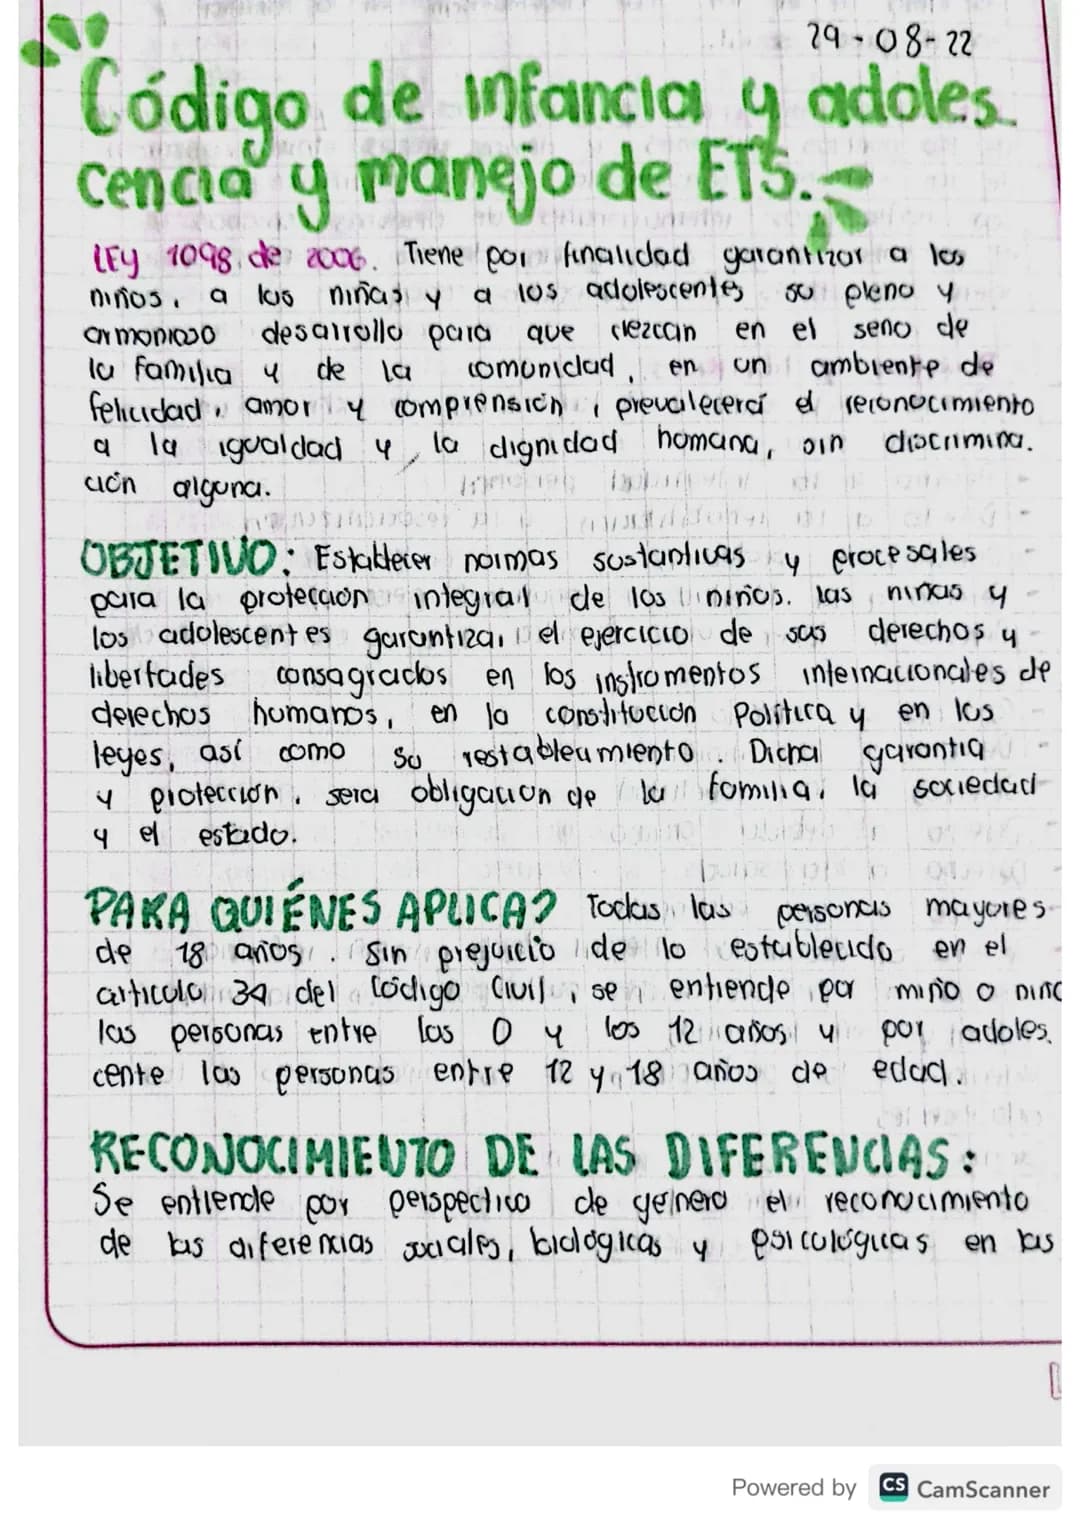 29-08-22
Código de infancia y adoles
cencia y manejo de ETS.
LEY 1098 de 2006. Tiene por finalidad garantizar a los
niños, a las niñas y a los adolescentes su pleno y
armonioso desarrollo para que crezcan en el seno de
la familia y de la comunidad, en un ambiente de
felicidad, amor y comprensión, prevalecerá el reconocimiento
a la igualdad y la dignidad homana, sin discrimina.
ción alguna.
OBJETIVO: Establecer normas sustantivas y procesales
para la protección integral de los niños. las niñas y
los adolescentes garantizar el ejercicio de sus derechos y
libertades consagrados en los instromentos internacionales de
derechos humanos, en la constitución Política y en las
leyes, así como su restablecimiento. Dicha garantia
y protección. sera obligación de la familia, la sociedad
y el estado.
PARA QUIÉNES APLICA? Todas las personas mayores
de 18 años. Sin prejuicio de lo establecido en el
articulo 34 del Código Civil, se entiende por miño o niñ
las personas entre los 0 y los 12 años y por adoles.
cente las personas entre 12 y 18 años de edad.
RECONOCIMIENTO DE LAS DIFERENCIAS:
Se entiende por perspectiva de genero el reconocimiento
de las diferencias sociales, biológicas y psicológicas en las
Powered by CS CamScanner